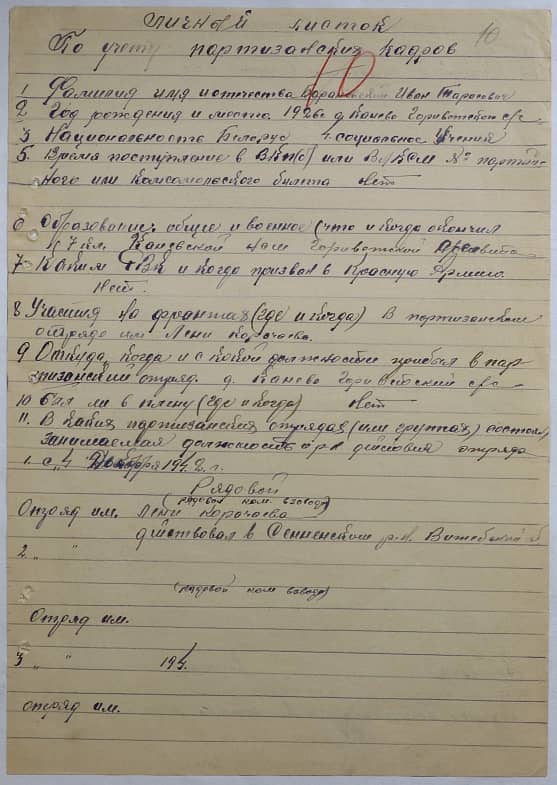 Личный листок
10
По учету партизанских кадров
10
1 Фамилия имя и отчества Иван Тарасович
2 Год рождения и места 1926 г д. Канево с/с
3 Национальность Белорус 4. социальное Ученик
5. Время поступление в ВКП(б) или ВЛКСМ № партий-
ного или Комсомольского билета Нет
6 Образование: общее и военное (что и когда окончил
7 кл. Каневской
7 Каким РВК и когда призван в Красную Армию.
Нет.
8 Участия на фронтах (где и когда) в партизанском
отряде им Лени
9 Откуда, когда и с какой должности прибыл в пар-
тизанский отряд. д. Канево с/с
10 был ли в плену (где и когда) Нет
11. В каких партизанских отрядах (или группах) состоял,
занимаемая должность и р-н действия отряда
1. с „ 194 2 г.
Рядовой
(рядовой ком. взвода)
Отряд им. Лени
действовал в Сенненском р-н. Витебской об
2 „ „
(рядовой ком взвода)
Отряд им.
3 „ „ 194.
отряд им.